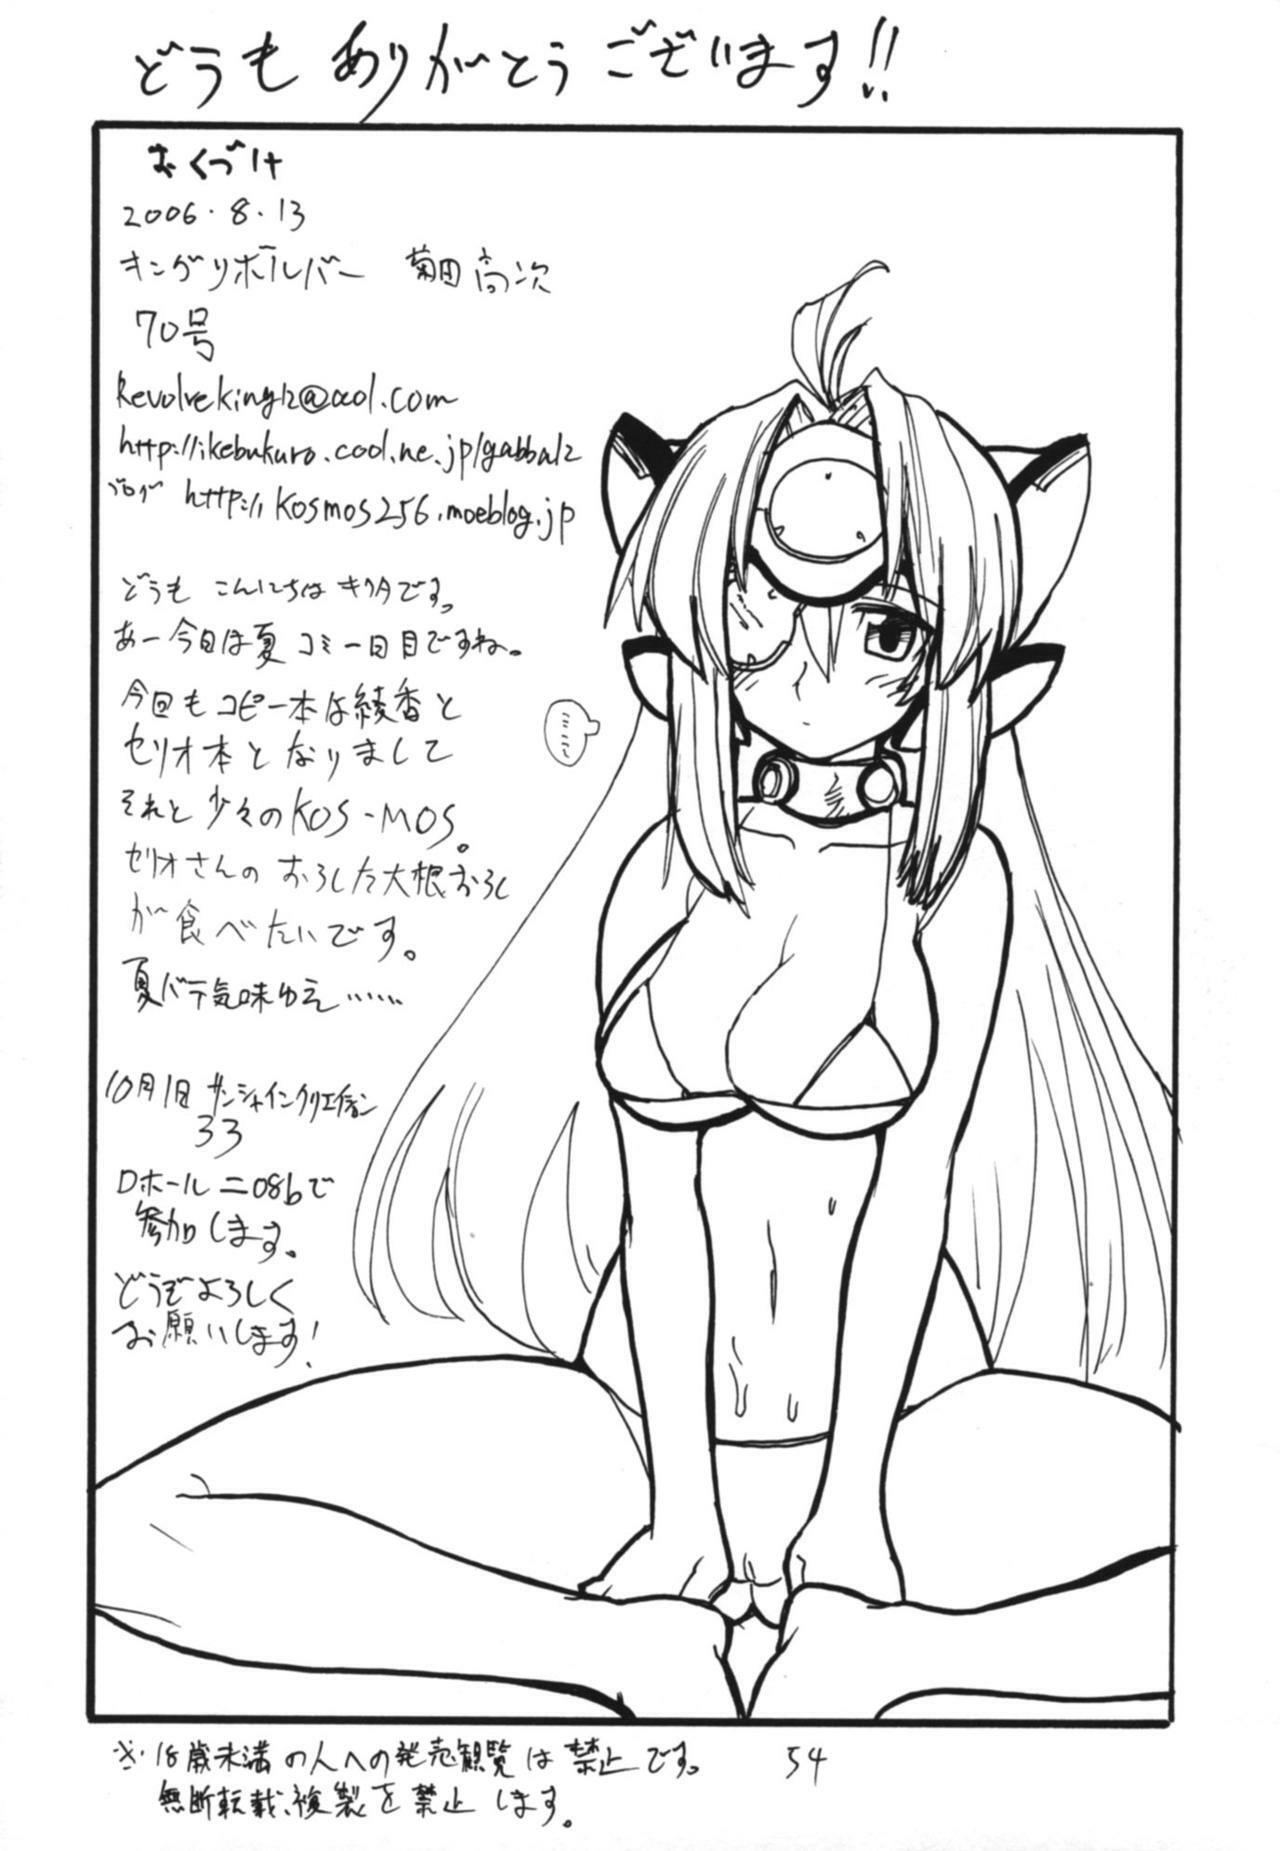 どうも ありがとうございます!!
おくづけ
2006.8.13
キングリボルバー 菊田高次
70号
Revolveking12@aol.com
http://ikebukuro.cool.ne.jp/gabba12
ブログ http://kosmos256.moeblog.jp
どうも こんにちは キクタです。
あー今日は夏コミ一日目ですね。
今回もコピー本は綾香と
セリオ本となりまして
それと少々のKOS-MOS。
セリオさんの おろした大根おろし
が食べたいです。
夏バテ気味ゆえ……
10月1日 サンシャインクリエイション
33
Dホール ニ08bで
参加します。
どうぞよろしく
お願いします!
※18歳未満の人への発売観覧は禁止です。
無断転載、複製を禁止します。
54